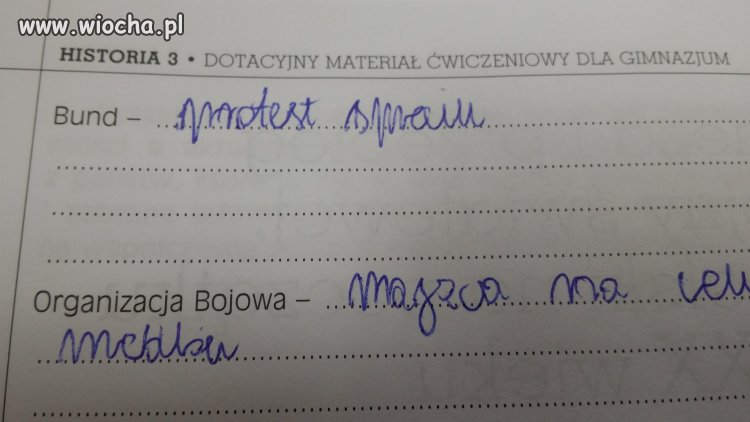 www.wiocha.pl
HISTORIA 3 • DOTACYJNY MATERIAŁ ĆWICZENIOWY DLA GIMNAZJUM
Bund – protest
Organizacja Bojowa – mająca na celu